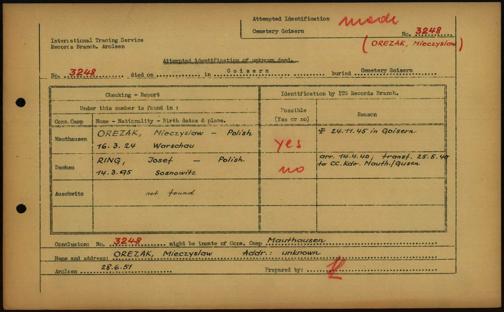 Attempted Identification made
Cemetery Goisern No. 3248
(OREZAK, Mieczyslaw)
International Tracing Service
Records Branch. Arolsen
Attempted identification of unknown dead.
No. 3248 died on in Goisern buried Cemetery Goisern
Checking - Report
Identification by ITS Records Branch.
Under this number is found in :
Possible (Yes or no)
Reason
Conc.Camp Name - Nationality - Birth dates & place.
Mauthausen OREZAK, Mieczyslaw - Polish yes 24.11.45 in Goisern
16.3.24 Warschau
Dachau RING, Josef - Polish no arr. 14.4.40, transf. 25.5.40
14.3.95 Sosnowitz to CC.Kdr. Mauth./Gusen
Auschwitz not found
Conclusion: No. 3248 might be inmate of Conc. Camp Mauthausen
Name and address: OREZAK, Mieczyslaw Addr.: unknown
Arolsen 28.6.51 Prepared by: